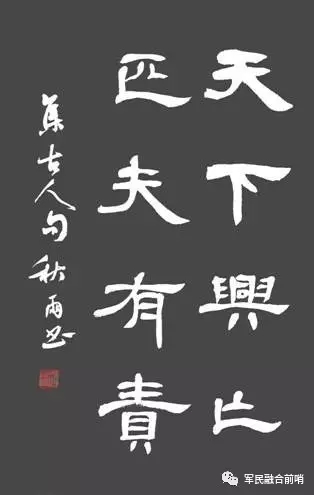 天下興亡
匹夫有責
集古人句 秋雨书
军民融合前哨